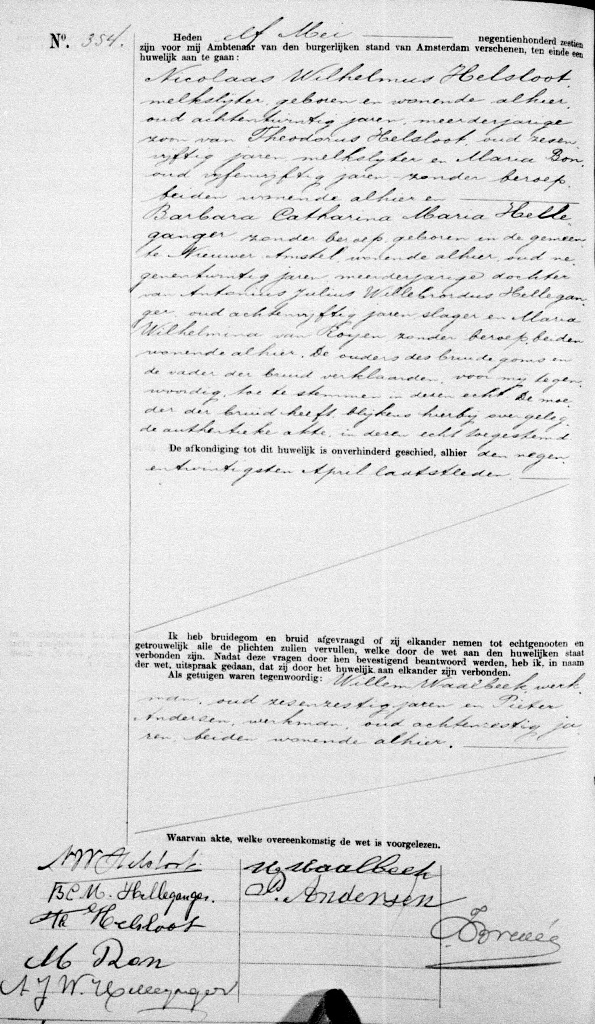 No. 354.
Heden elf Mei negentienhonderd zestien
zijn voor mij Ambtenaar van den burgerlijken stand van Amsterdam verschenen, ten einde een
huwelijk aan te gaan:
Nicolaas Wilhelmus Helsloot,
melkslyter, geboren en wonende alhier,
oud achtentwintig jaren, meerderjarige
zoon van Theodorus Helsloot, oud zesen
vyftig jaren, melkslyter en Maria Bon,
oud vyfenvyftig jaren zonder beroep,
beiden wonende alhier en
Barbara Catharina Maria Helle
ganger zonder beroep, geboren in de gemeen
te Nieuwer Amstel, wonende alhier, oud ne
genentwintig jaren, meerderjarige dochter
van Antonius Julius Willebrordus Hellegan
ger, oud achtenvyftig jaren slager en Maria
Wilhelmina van Rooyen zonder beroep, beiden
wonende alhier. De ouders des bruidegoms en
de vader der bruid verklaarden, voor my tegen
woordig, toe te stemmen in dezen echt. De moe
der der bruid heeft, blykens hierby overgeleg
de authentieke akte, in dezen echt toegestemd
De afkondiging tot dit huwelijk is onverhinderd geschied, alhier den negen
entwintigsten April laatstleden.
Ik heb bruidegom en bruid afgevraagd of zij elkander nemen tot echtgenooten en
getrouwelijk alle de plichten zullen vervullen, welke door de wet aan den huwelijken staat
verbonden zijn. Nadat deze vragen door hen bevestigend beantwoord werden, heb ik, in naam
der wet, uitspraak gedaan, dat zij door het huwelijk aan elkander zijn verbonden.
Als getuigen waren tegenwoordig: Willem Waalbeek, werk
man, oud zesenzestig jaren en Pieter
Andersen, werkman, oud achtenzestig ja
ren, beiden wonende alhier.
Waarvan akte, welke overeenkomstig de wet is voorgelezen.
N W Helsloot
W Waalbeek
B.C.M. Helleganger.
P. Andersen
Th Helsloot
M Bon
A J W. Helleganger